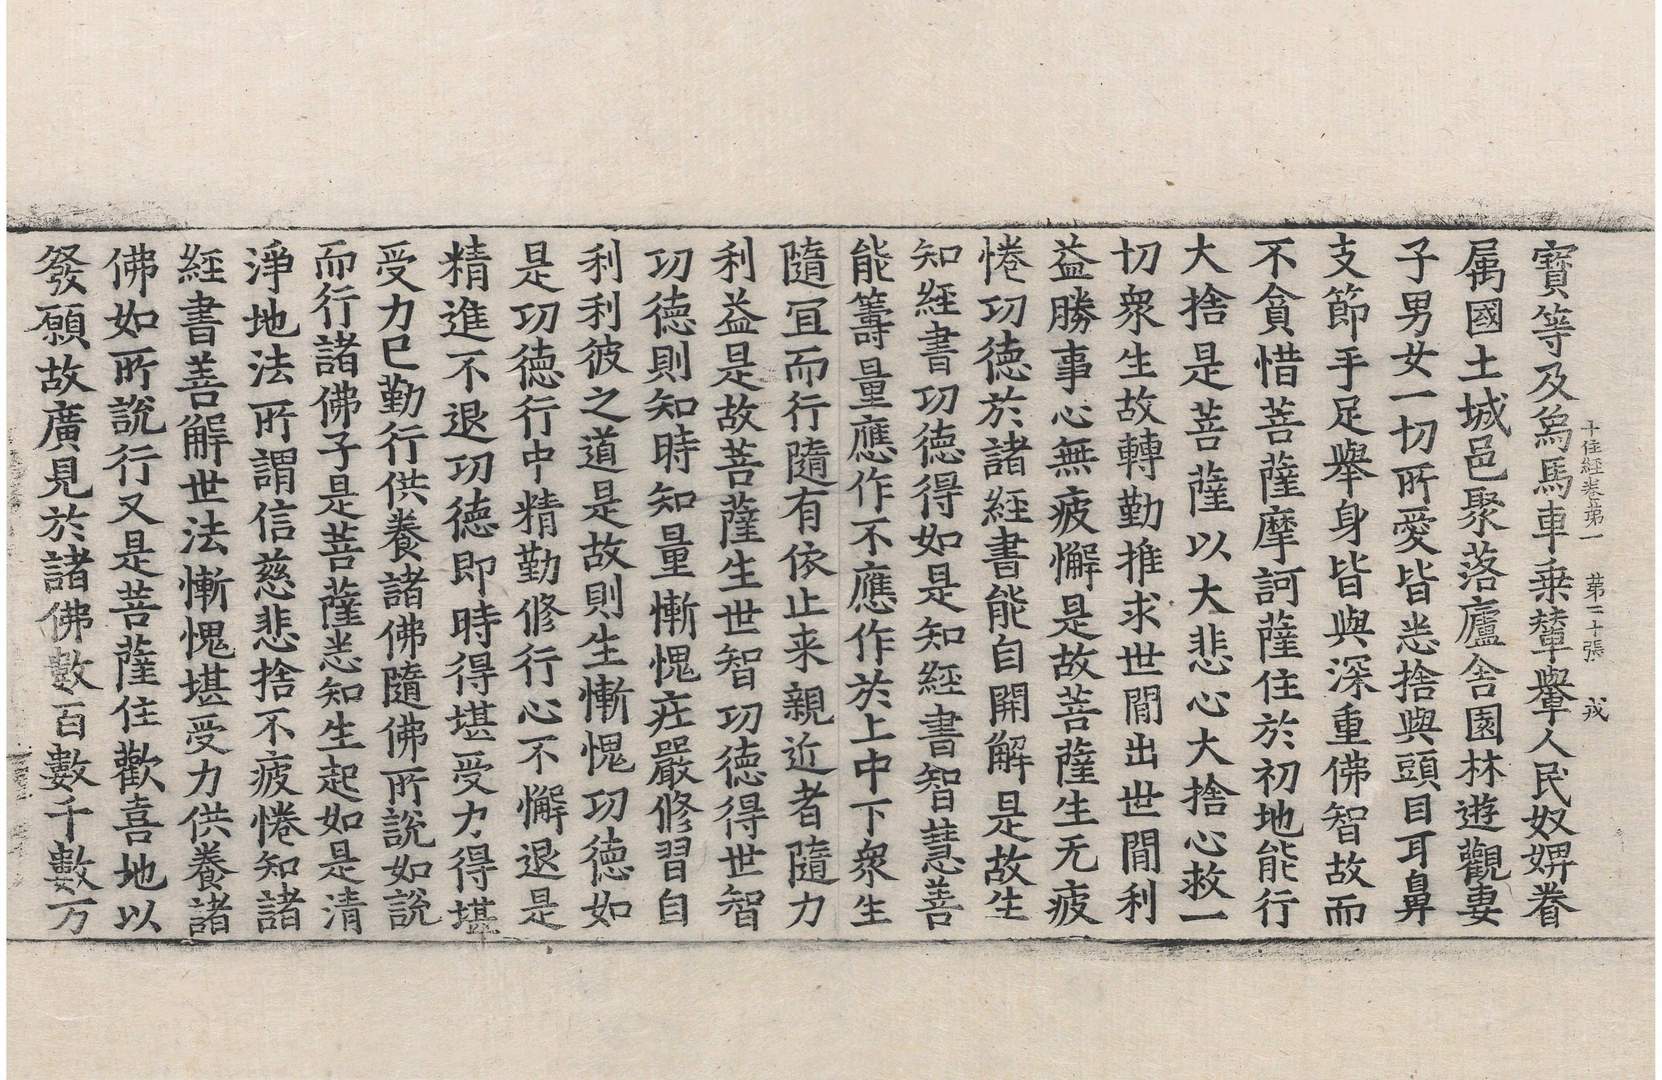 十住經卷第一 第二十張 戎
寶等及象馬車乗輦轝人民奴婢眷
属國土城邑聚落廬舍園林遊觀妻
子男女一切所愛皆悉捨與頭目耳鼻
支節手足舉身皆與深重佛智故而
不貪惜菩薩摩訶薩住於初地能行
大捨是菩薩以大悲心大捨心救一
切衆生故轉勤推求世閒出世閒利
益勝事心無疲懈是故菩薩生无疲
惓功德於諸經書能自開解是故生
知經書功德得如是知經書智慧善
能籌量應作不應作於上中下衆生
隨宜而行隨有依止来親近者隨力
利益是故菩薩生世智功德得世智
功德則知時知量慚愧莊嚴修習自
利利彼之道是故則生慚愧功德如
是功德行中精勤修行心不懈退是
精進不退功德即時得堪受力得堪
受力已勤行供養諸佛隨佛所說如說
而行諸佛子是菩薩悉知生起如是清
淨地法所謂信慈悲捨不疲惓知諸
經書善解世法慚愧堪受力供養諸
佛如所說行又是菩薩住歡喜地以
發願故廣見於諸佛數百數千數万